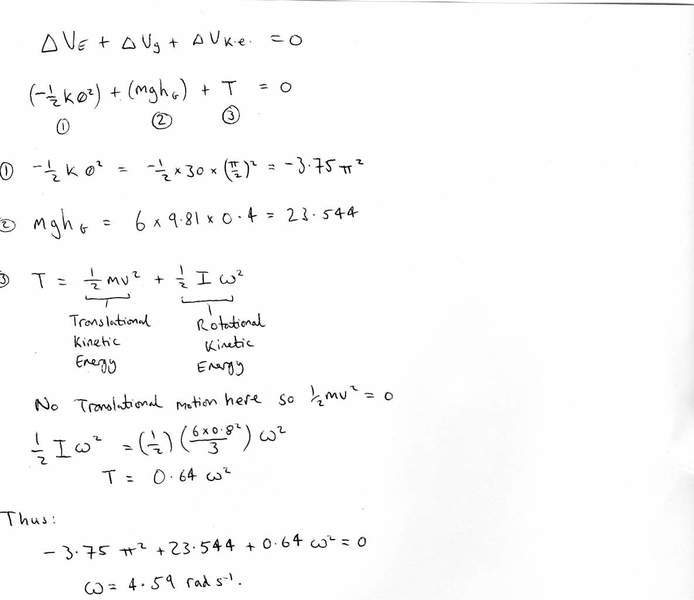 ΔV_E + ΔV_g + ΔV_K.e. = 0
(-½kθ²) + (mgh_G) + T = 0
① ② ③
① -½kθ² = -½×30×(π/2)² = -3.75π²
② mgh_G = 6 × 9.81 × 0.4 = 23.544
③ T = ½mv² + ½Iω²
Translational Rotational
Kinetic Kinetic
Energy Energy
No Translational motion here so ½mv² = 0
½Iω² = (½)(6×0.8²/3)ω²
T = 0.64 ω²
Thus:
-3.75π² + 23.544 + 0.64ω² = 0
ω = 4.59 rad s⁻¹.